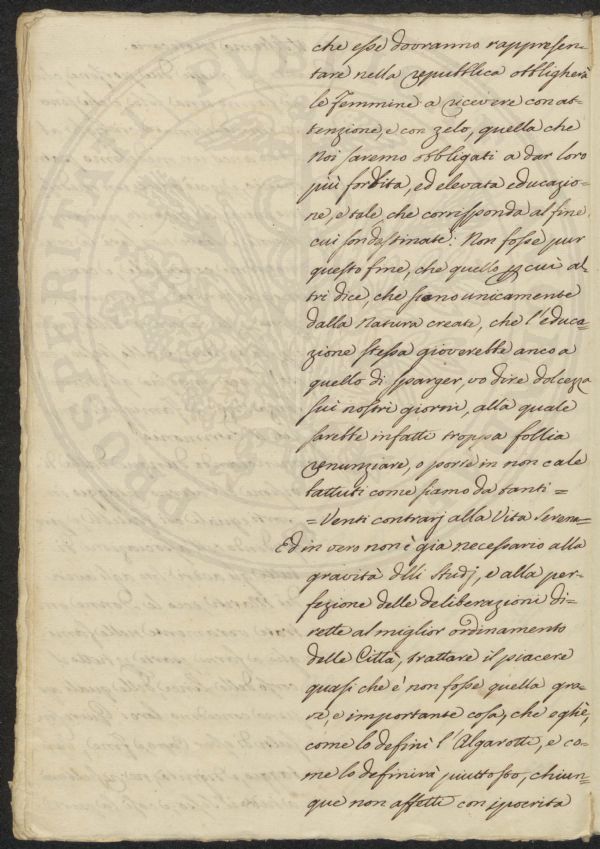 che esse dovranno rappresen-
tare nella repubblica obbligherà
le Femmine a ricevere con at-
tenzione, e con zelo, quella che
Noi saremo obbligati a dar loro
più forbita, ed elevata educazio-
ne, e tale che corrisponda al fine,
cui son destinate: Non fosse pur
questo fine, che quello per cui al-
tri dice, che sieno unicamente
dalla Natura create, che l'educa-
zione stessa gioverebbe anco a
quello di sparger, vo dire dolcezza
sui nostri giorni, alla quale
sarebbe infatti troppa follia
renunziare, o porre in non cale
battuti come siamo da tanti =
= Venti contrarj alla Vita Serena =
Ed in vero non è già necessario alla
gravità delli Studj, e alla per-
fezione delle deliberazioni di-
rette al miglior ordinamento
delle Città, trattare il piacere
quasi che e' non fosse quella gra-
ve, e importante cosa, che egli è,
come lo definì l'Algarotti, e co-
me lo definirà piuttosto, chiun-
que non affetti con ipocrita
PROSPERITATI PUBLI